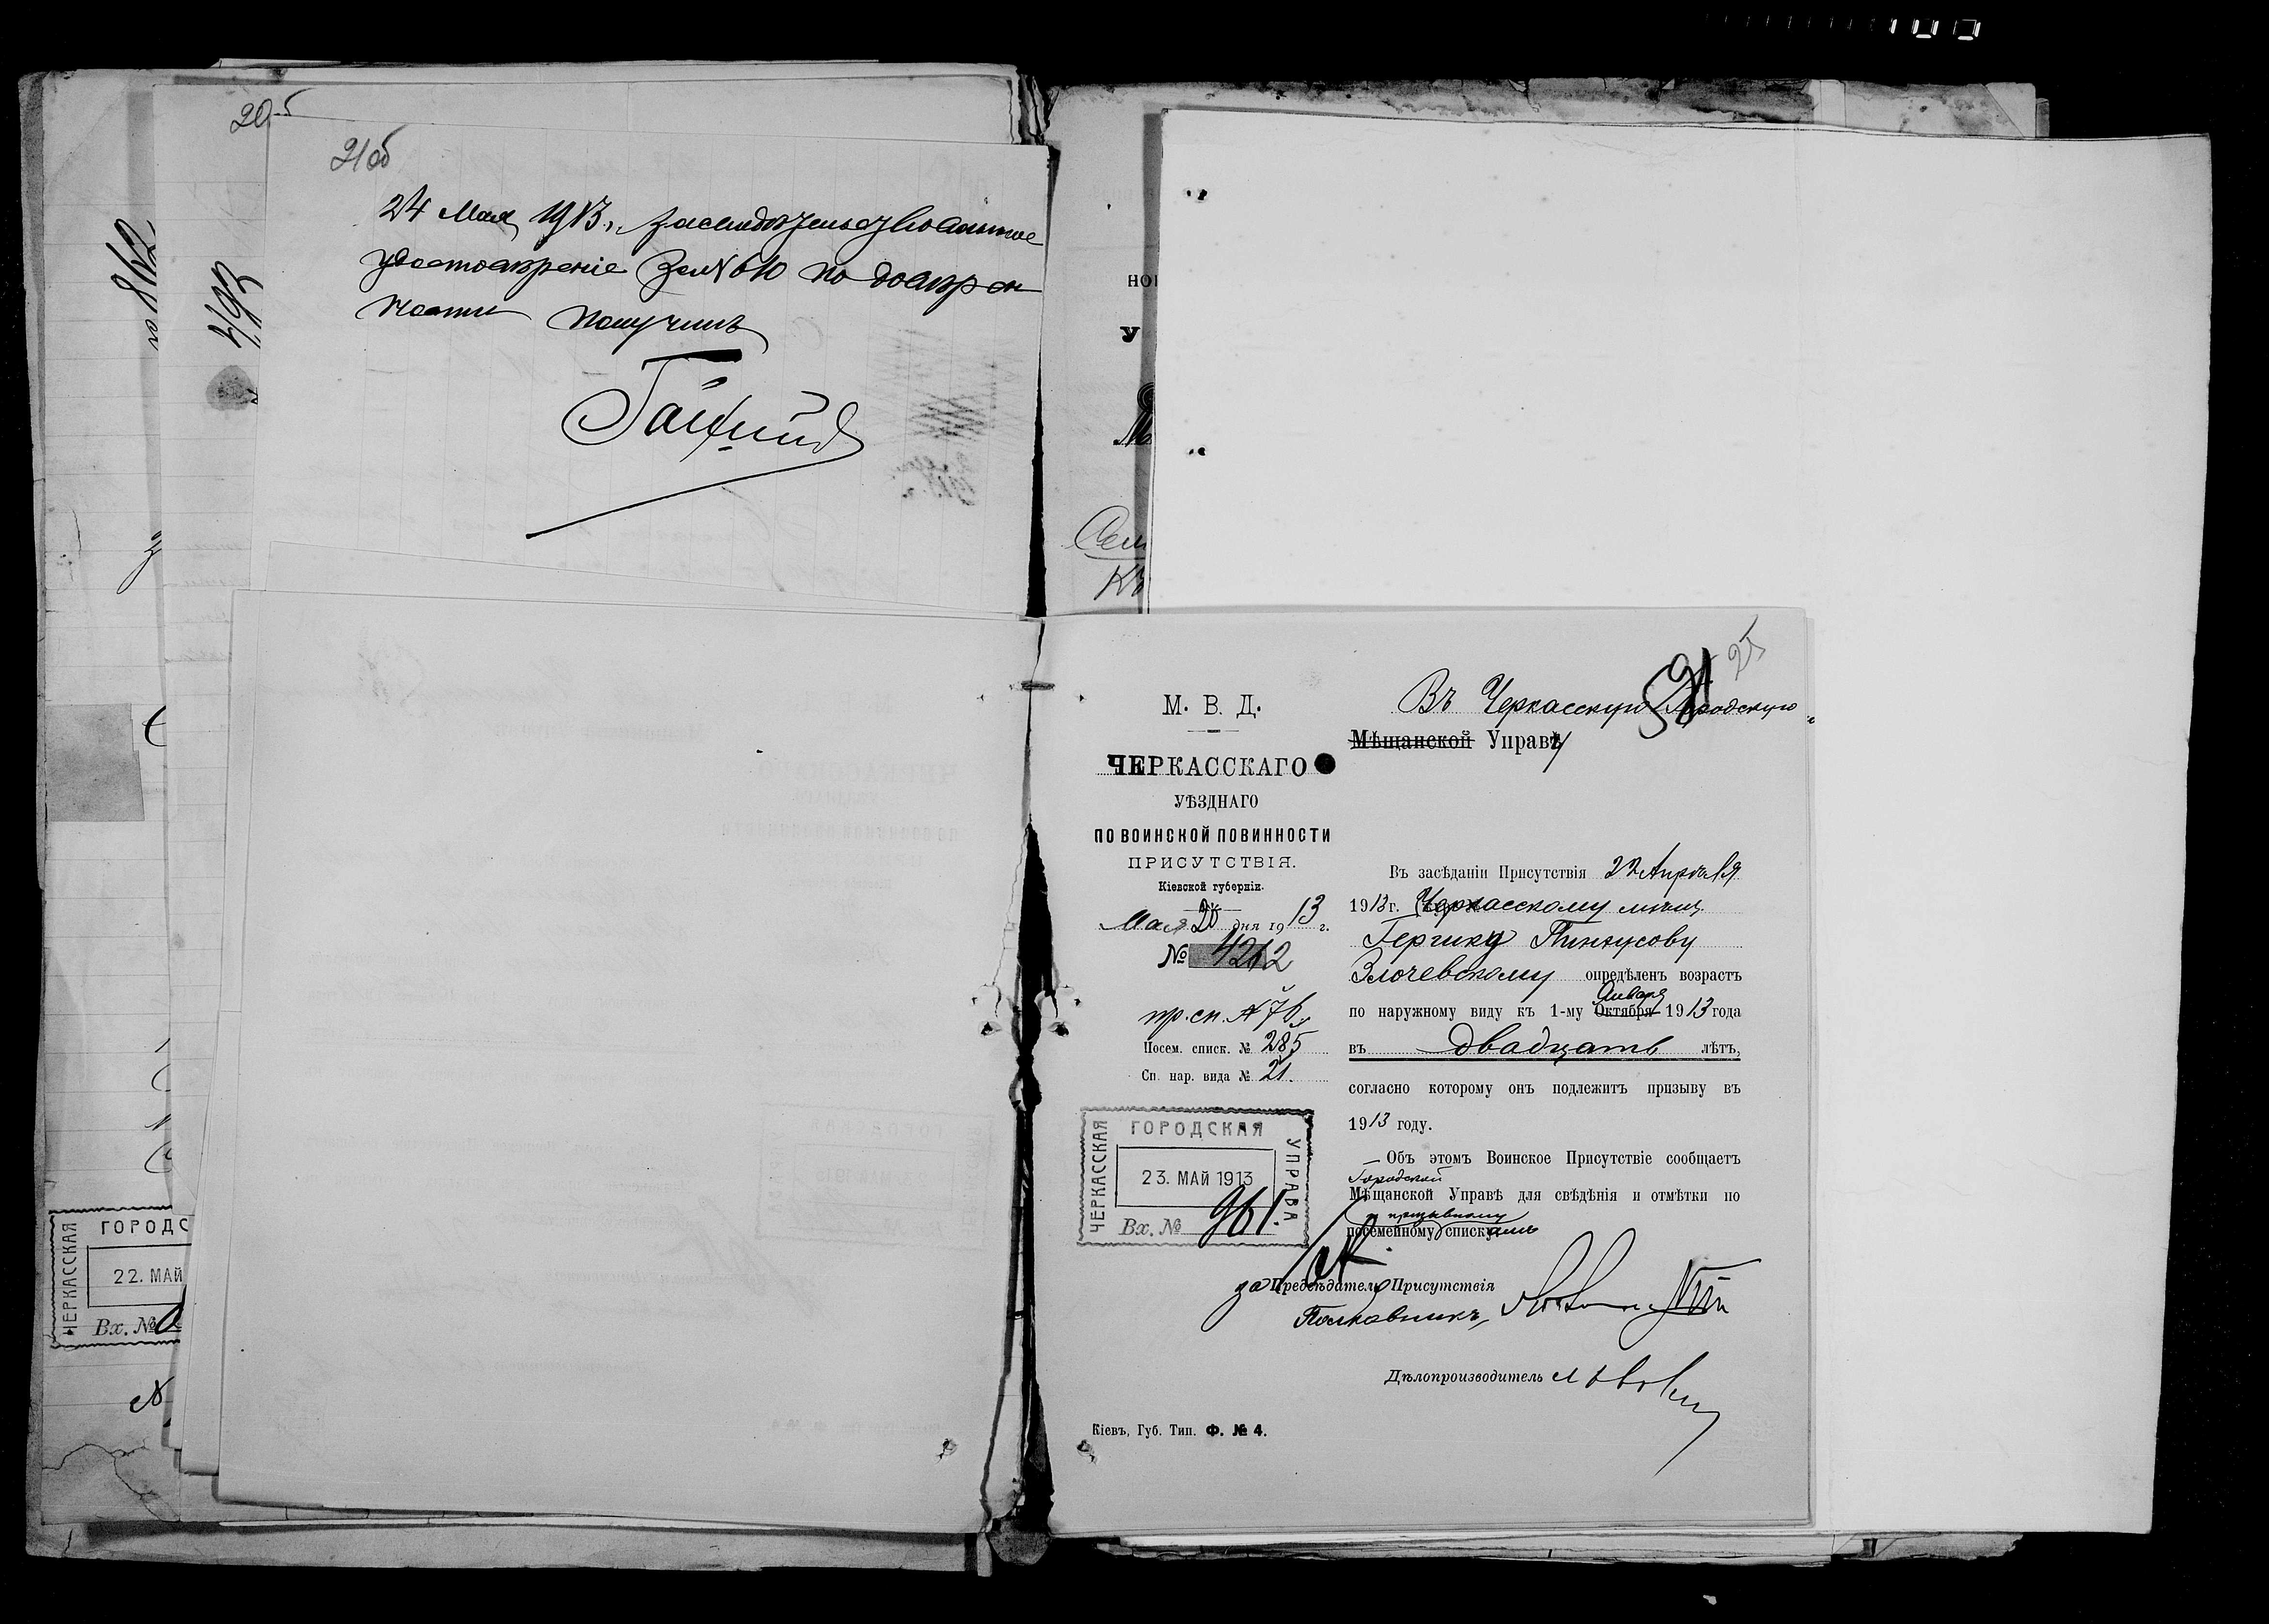 100
20б
21об
24 Мая 1913 г. засвидетельствованное
удостовѣреніе за № 610 по довѣрен
ности получилъ
493
ГОРОДС
ЧЕРКАССКАЯ
22. МАЙ
Вх. №
Сем
25
М. В. Д.
ЧЕРКАССКАГО
УѢЗДНАГО
ПО ВОИНСКОЙ ПОВИННОСТИ
ПРИСУТСТВІЯ.
Кіевской губерніи.
Мая 20 дня 1913 г.
№ 4262
пр. сп. № 76
Посем. списк. № 285
Сп. нар. вида № 21.
ГОРОДСКАЯ
ЧЕРКАССКАЯ
УПРАВА
23. МАЙ 1913
Вх. № 961.
Въ Черкасскую Городскую
Мѣщанской Управу
Въ засѣданіи Присутствія 22 Апрѣля
1913 г. Черкасскому мѣщ.
Гершку Пинкусову
Злочевскому опредѣленъ возрастъ
по наружному виду къ 1-му Октября Января 1913 года
въ двадцать лѣтъ,
согласно которому онъ подлежитъ призыву въ
1913 году.
Объ этомъ Воинское Присутствіе сообщаетъ
Городской
Мѣщанской Управѣ для свѣдѣнія и отмѣтки по
и призывному
посемейному спискамъ
за Предсѣдателя Присутствія
Полковникъ,
Дѣлопроизводитель
Кіевъ, Губ. Тип. Ф. № 4.